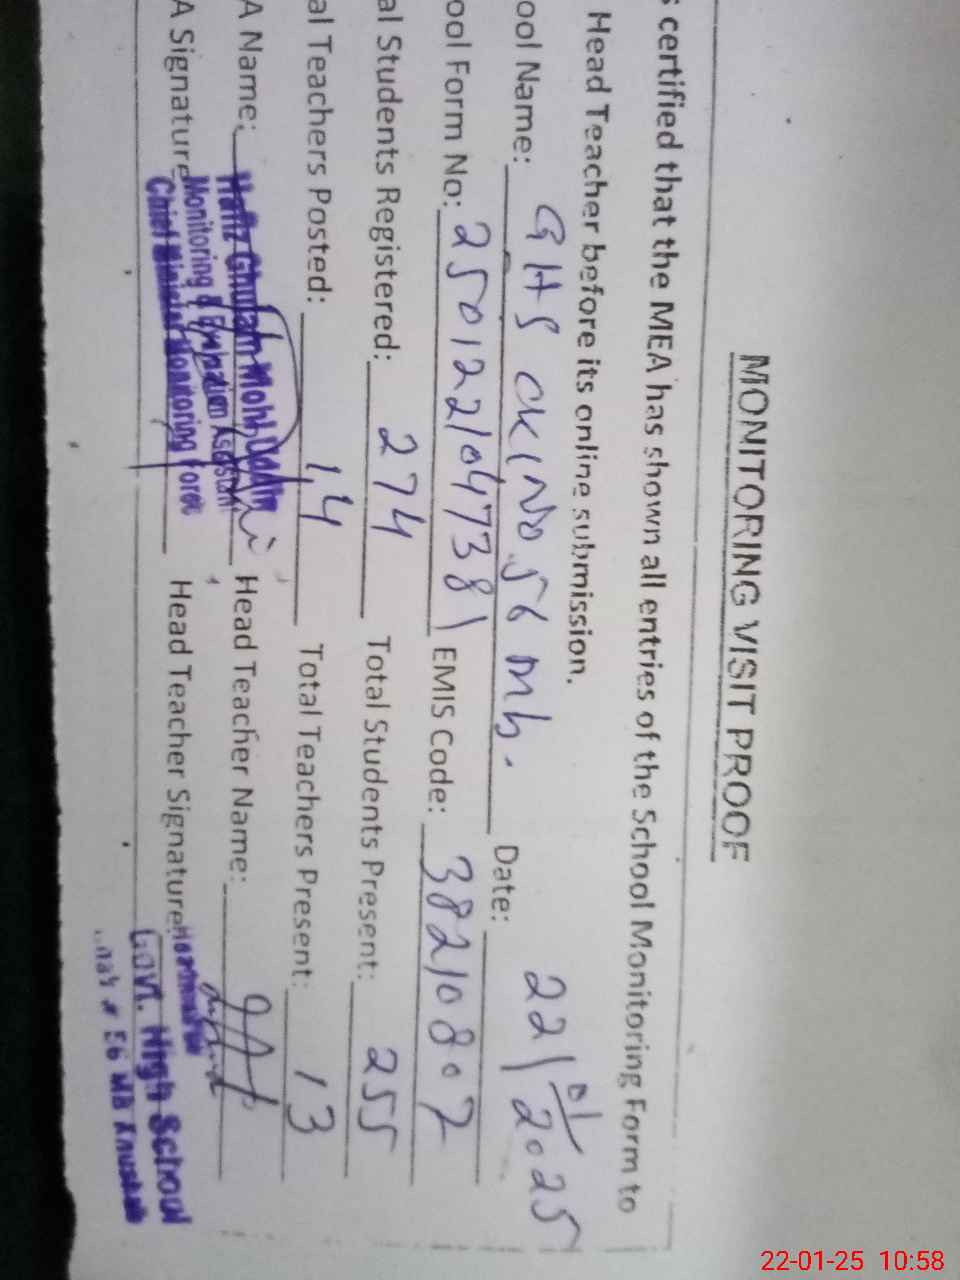 MONITORING VISIT PROOF
s certified that the MEA has shown all entries of the School Monitoring Form to
Head Teacher before its online submission.
ool Name: GHS CK/No 56 mb. Date: 22/01/2025
ool Form No: 250122104738 EMIS Code: 38210807
al Students Registered: 274 Total Students Present: 255
al Teachers Posted: 14 Total Teachers Present: 13
A Name: Hafiz Ghulam Mohi Head Teacher Name:
Monitoring & Evaluation Assistant
A Signature Chief Minister Monitoring Force Head Teacher Signature:
Govt. High School
56 MB
22-01-25 10:58